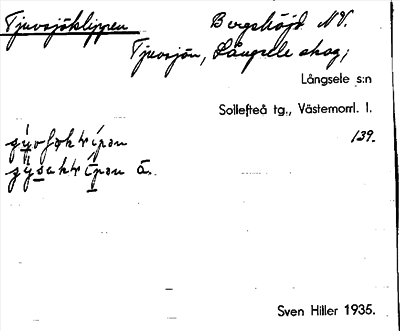 Tjuvsjöklippen Bergshöjd NV.
Tjuvsjön, Långsele skog;
Långsele s:n
Sollefteå tg., Västernorrl. l.
139.
Sven Hiller 1935.